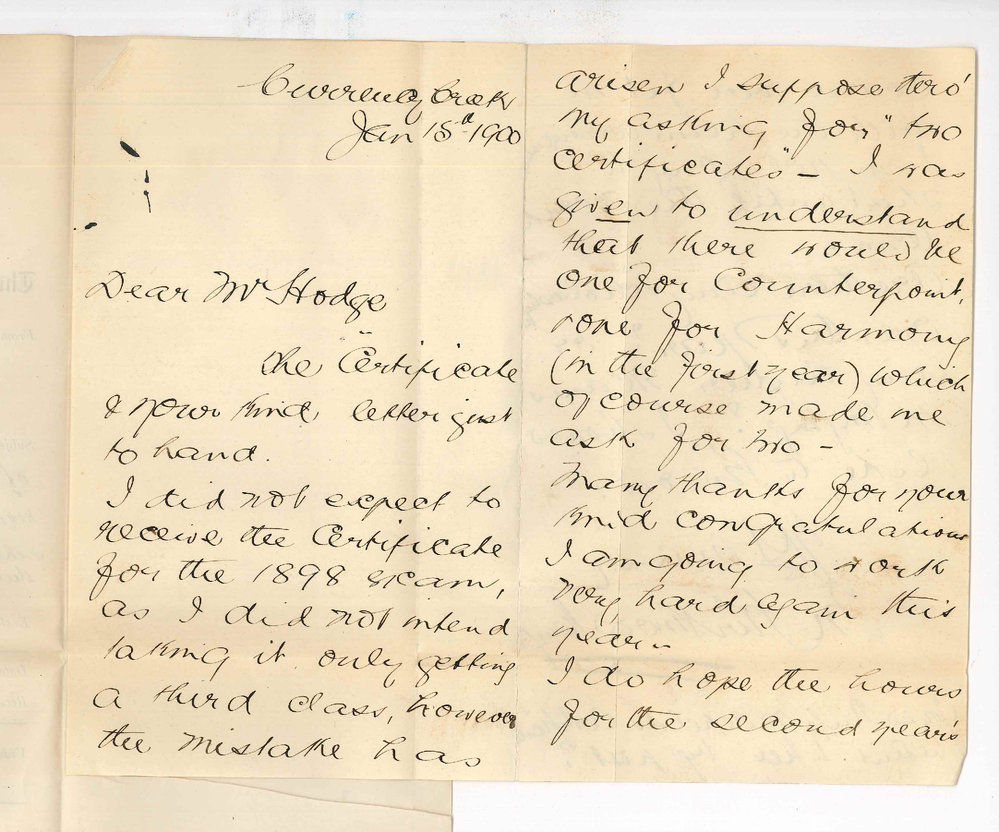 Currency Creek
Jan 15th 1900
Dear Mr Hodge
The "Certificate
& your kind letter just
to hand.
I did not expect to
receive the Certificate
for the 1898 exam,
as I did not intend
taking it only getting
a third class, however
the mistake has
arisen I suppose thro'
my asking for "two
certificates" – I was
given to understand
that there would be
one for Counterpoint,
& one for Harmony
(in the first year) which
of course made me
ask for two –
Many thanks for your
kind congratulations
I am going to work
very hard again this
year –
I do hope the hours
for the second year's